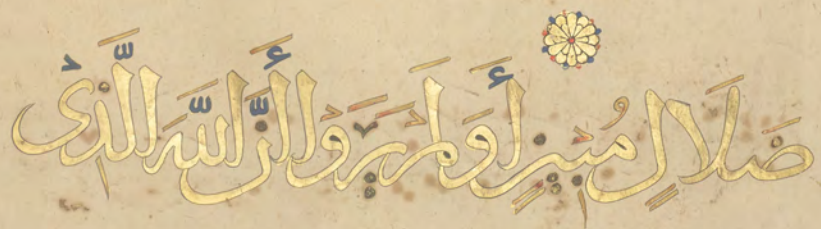 ضَلَالٍ مُبِينٍ أَوَلَمْ يَرَوْا أَنَّ اللَّهَ الَّذِى